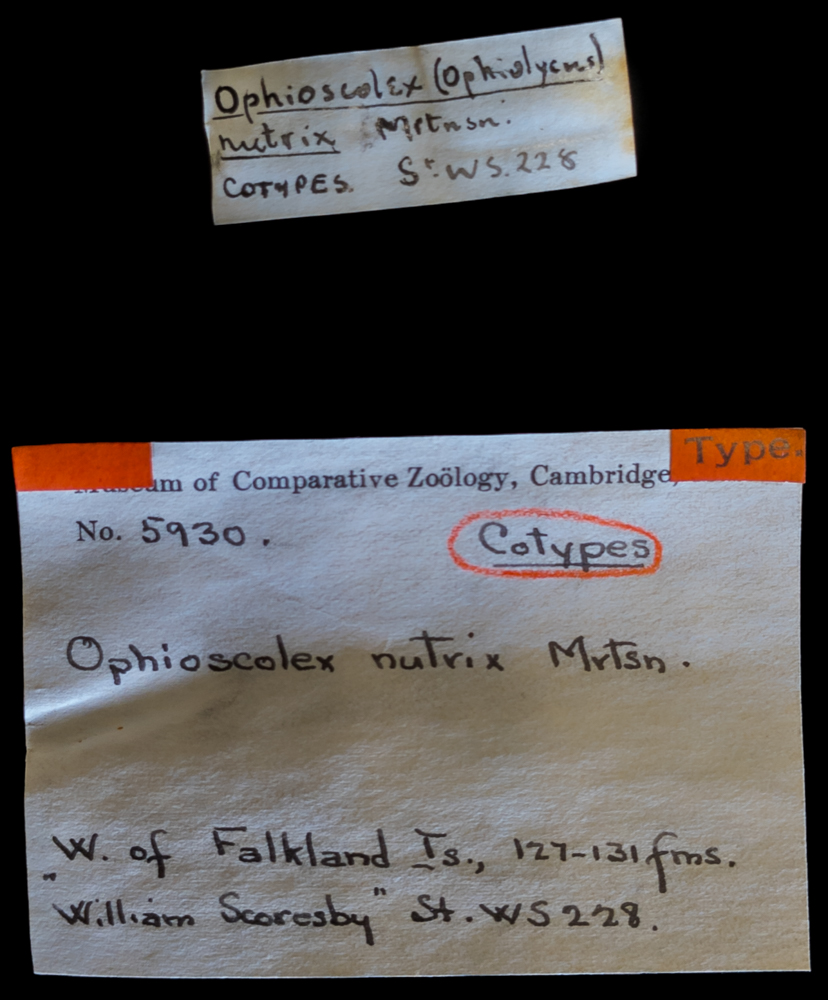 Ophioscolex (Ophiolycus)
nutrix Mrtnsn.
COTYPES. St. WS. 228
Type.
um of Comparative Zoölogy, Cambridge,
No. 5930.
Cotypes
Ophioscolex nutrix Mrtsn.
W. of Falkland Is., 127-131 fms.
"William Scoresby" St. WS 228.